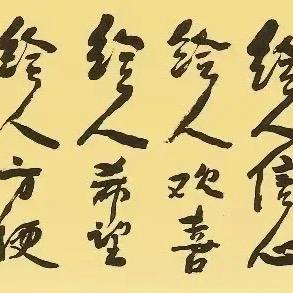 给人信心
给人欢喜
给人希望
给人方便